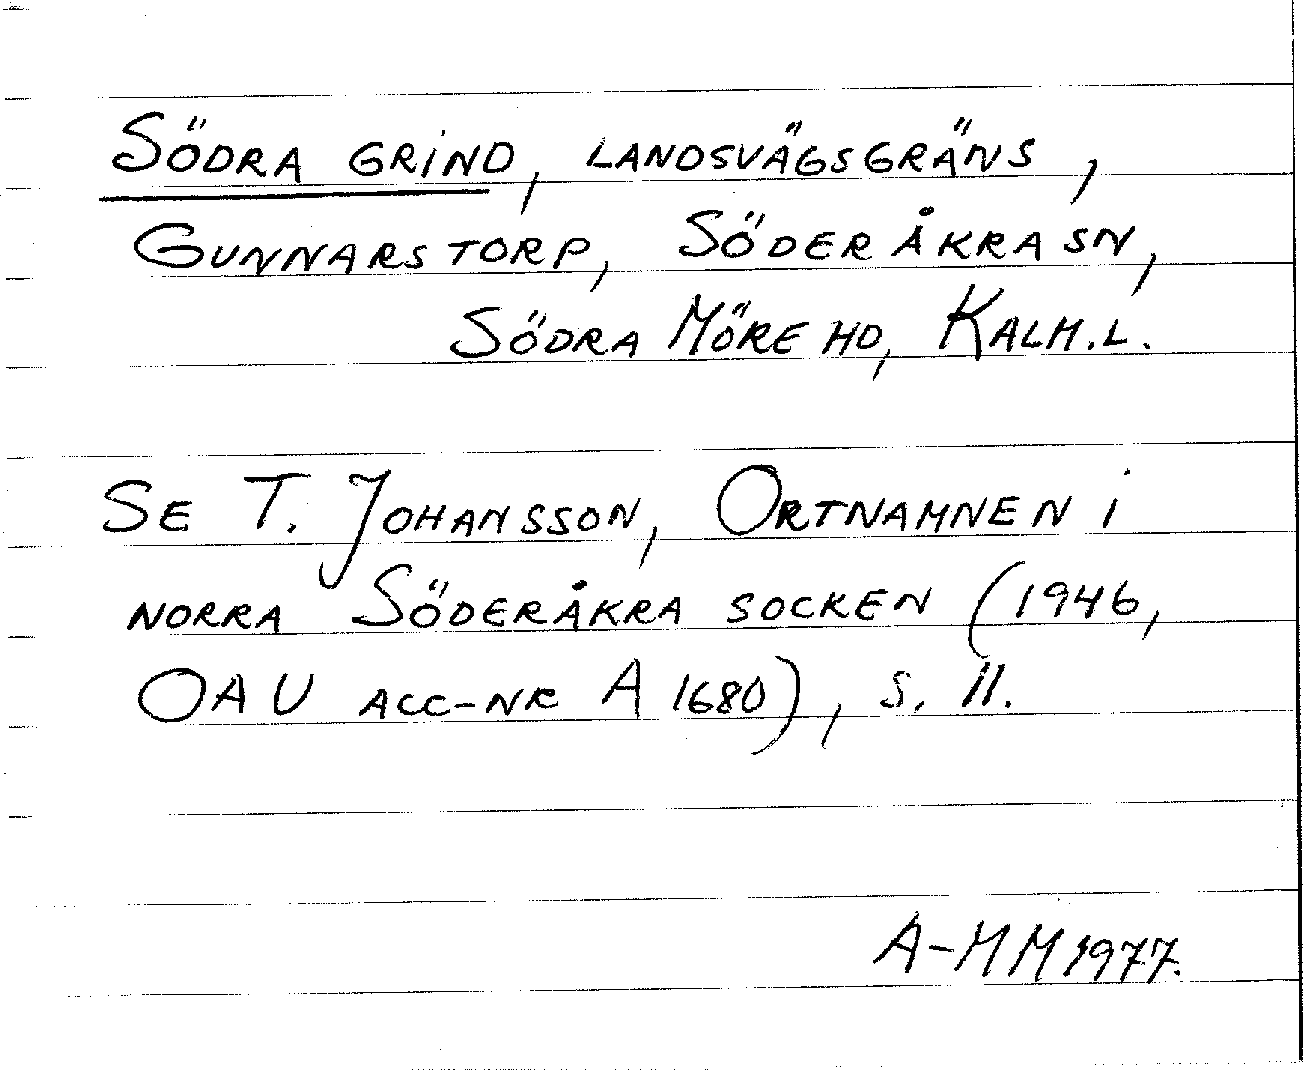 SÖDRA GRIND, LANDSVÄGSGRÄNS,
GUNNARSTORP, SÖDERÅKRA SN,
SÖDRA MÖRE HD, KALM.L.
SE T. JOHANSSON, ORTNAMNEN I
NORRA SÖDERÅKRA SOCKEN (1946,
OAU ACC-NR A 1680), S. 11.
A-MM 1977.